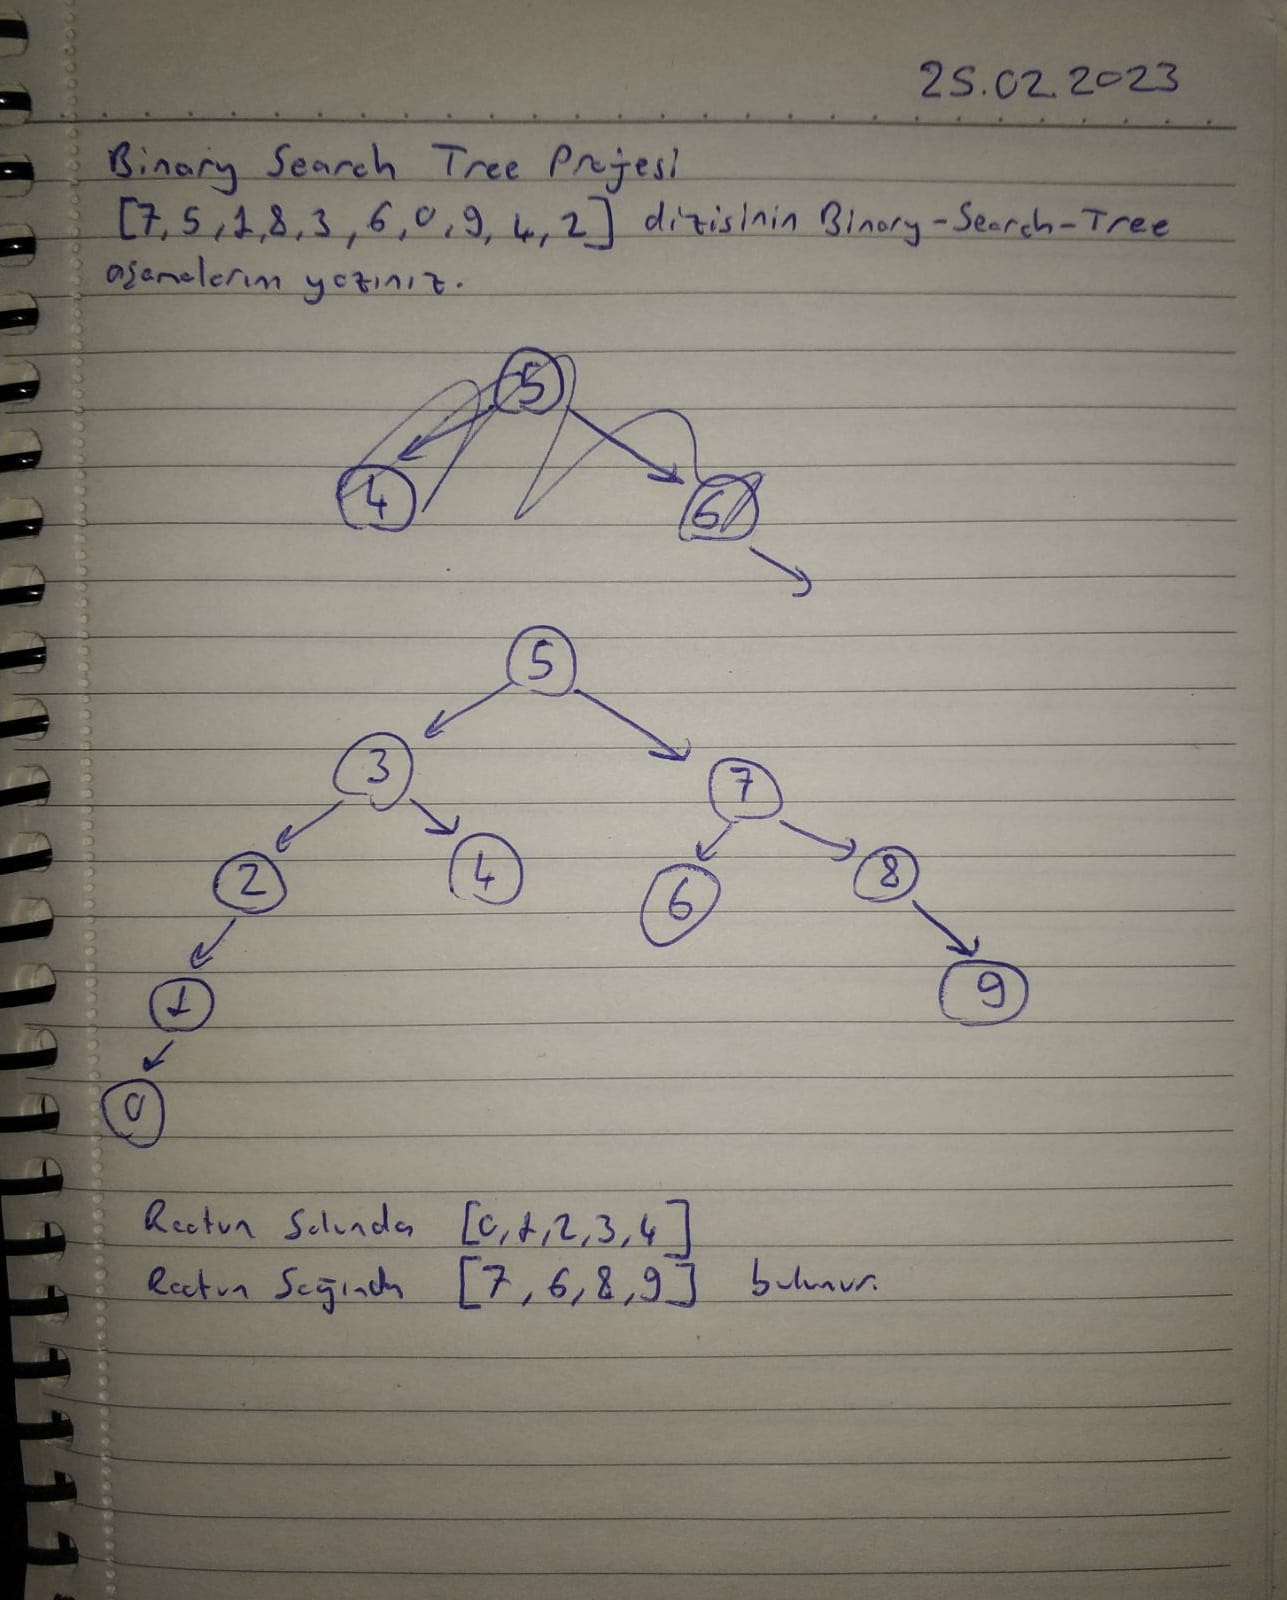 25.02.2023
Binary Search Tree Projesi
[7,5,1,8,3,6,0,9,4,2] dizisinin Binary-Search-Tree
aşamalarını yazınız.
5
4
6
5
3
7
2
4
6
8
1
9
0
Rootun Solunda [0,1,2,3,4]
Rootun Sağında [7,6,8,9] bulunur.